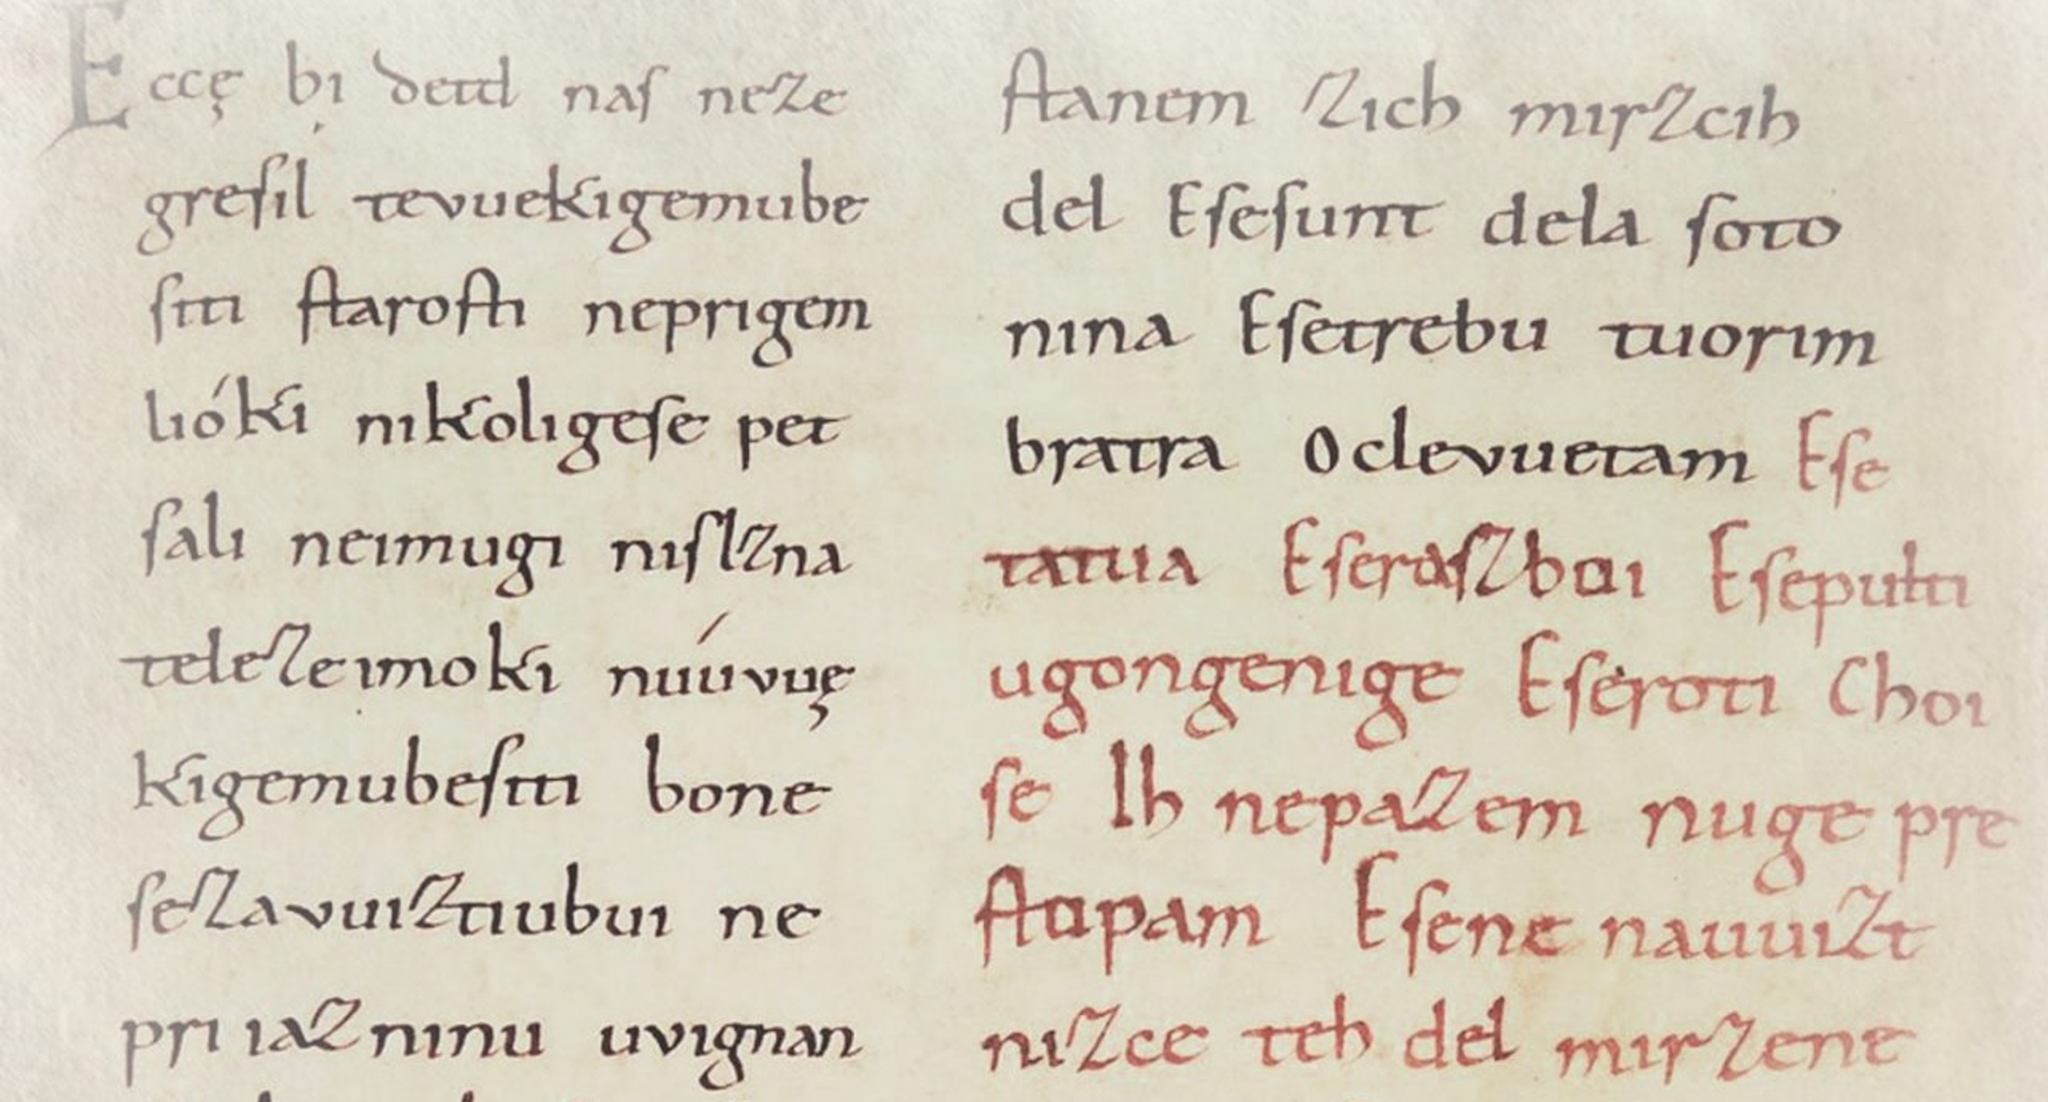 Eccę bi detd naſ neze
greſil tevuekigemube
ſiti ſtaroſti neprigem
lióki nikoligeſe pet
ſali neimugi niſlzna
telezeimoki nuúvuę
kigemubeſiti bone
ſezavuiztiubui ne
pri iazninu uvignan
ſtanem zich mirzcih
del Eſeſunt dela ſoto
nina Eſetrebu tuorim
bratra Oclevuetam Eſe
tatua Eſeraſzboi Eſepulti
ugongenige Eſeroti Choi
ſe Ih nepazem nuge pre
ſtopam Eſene nauuizt
nizce teh del mirzene